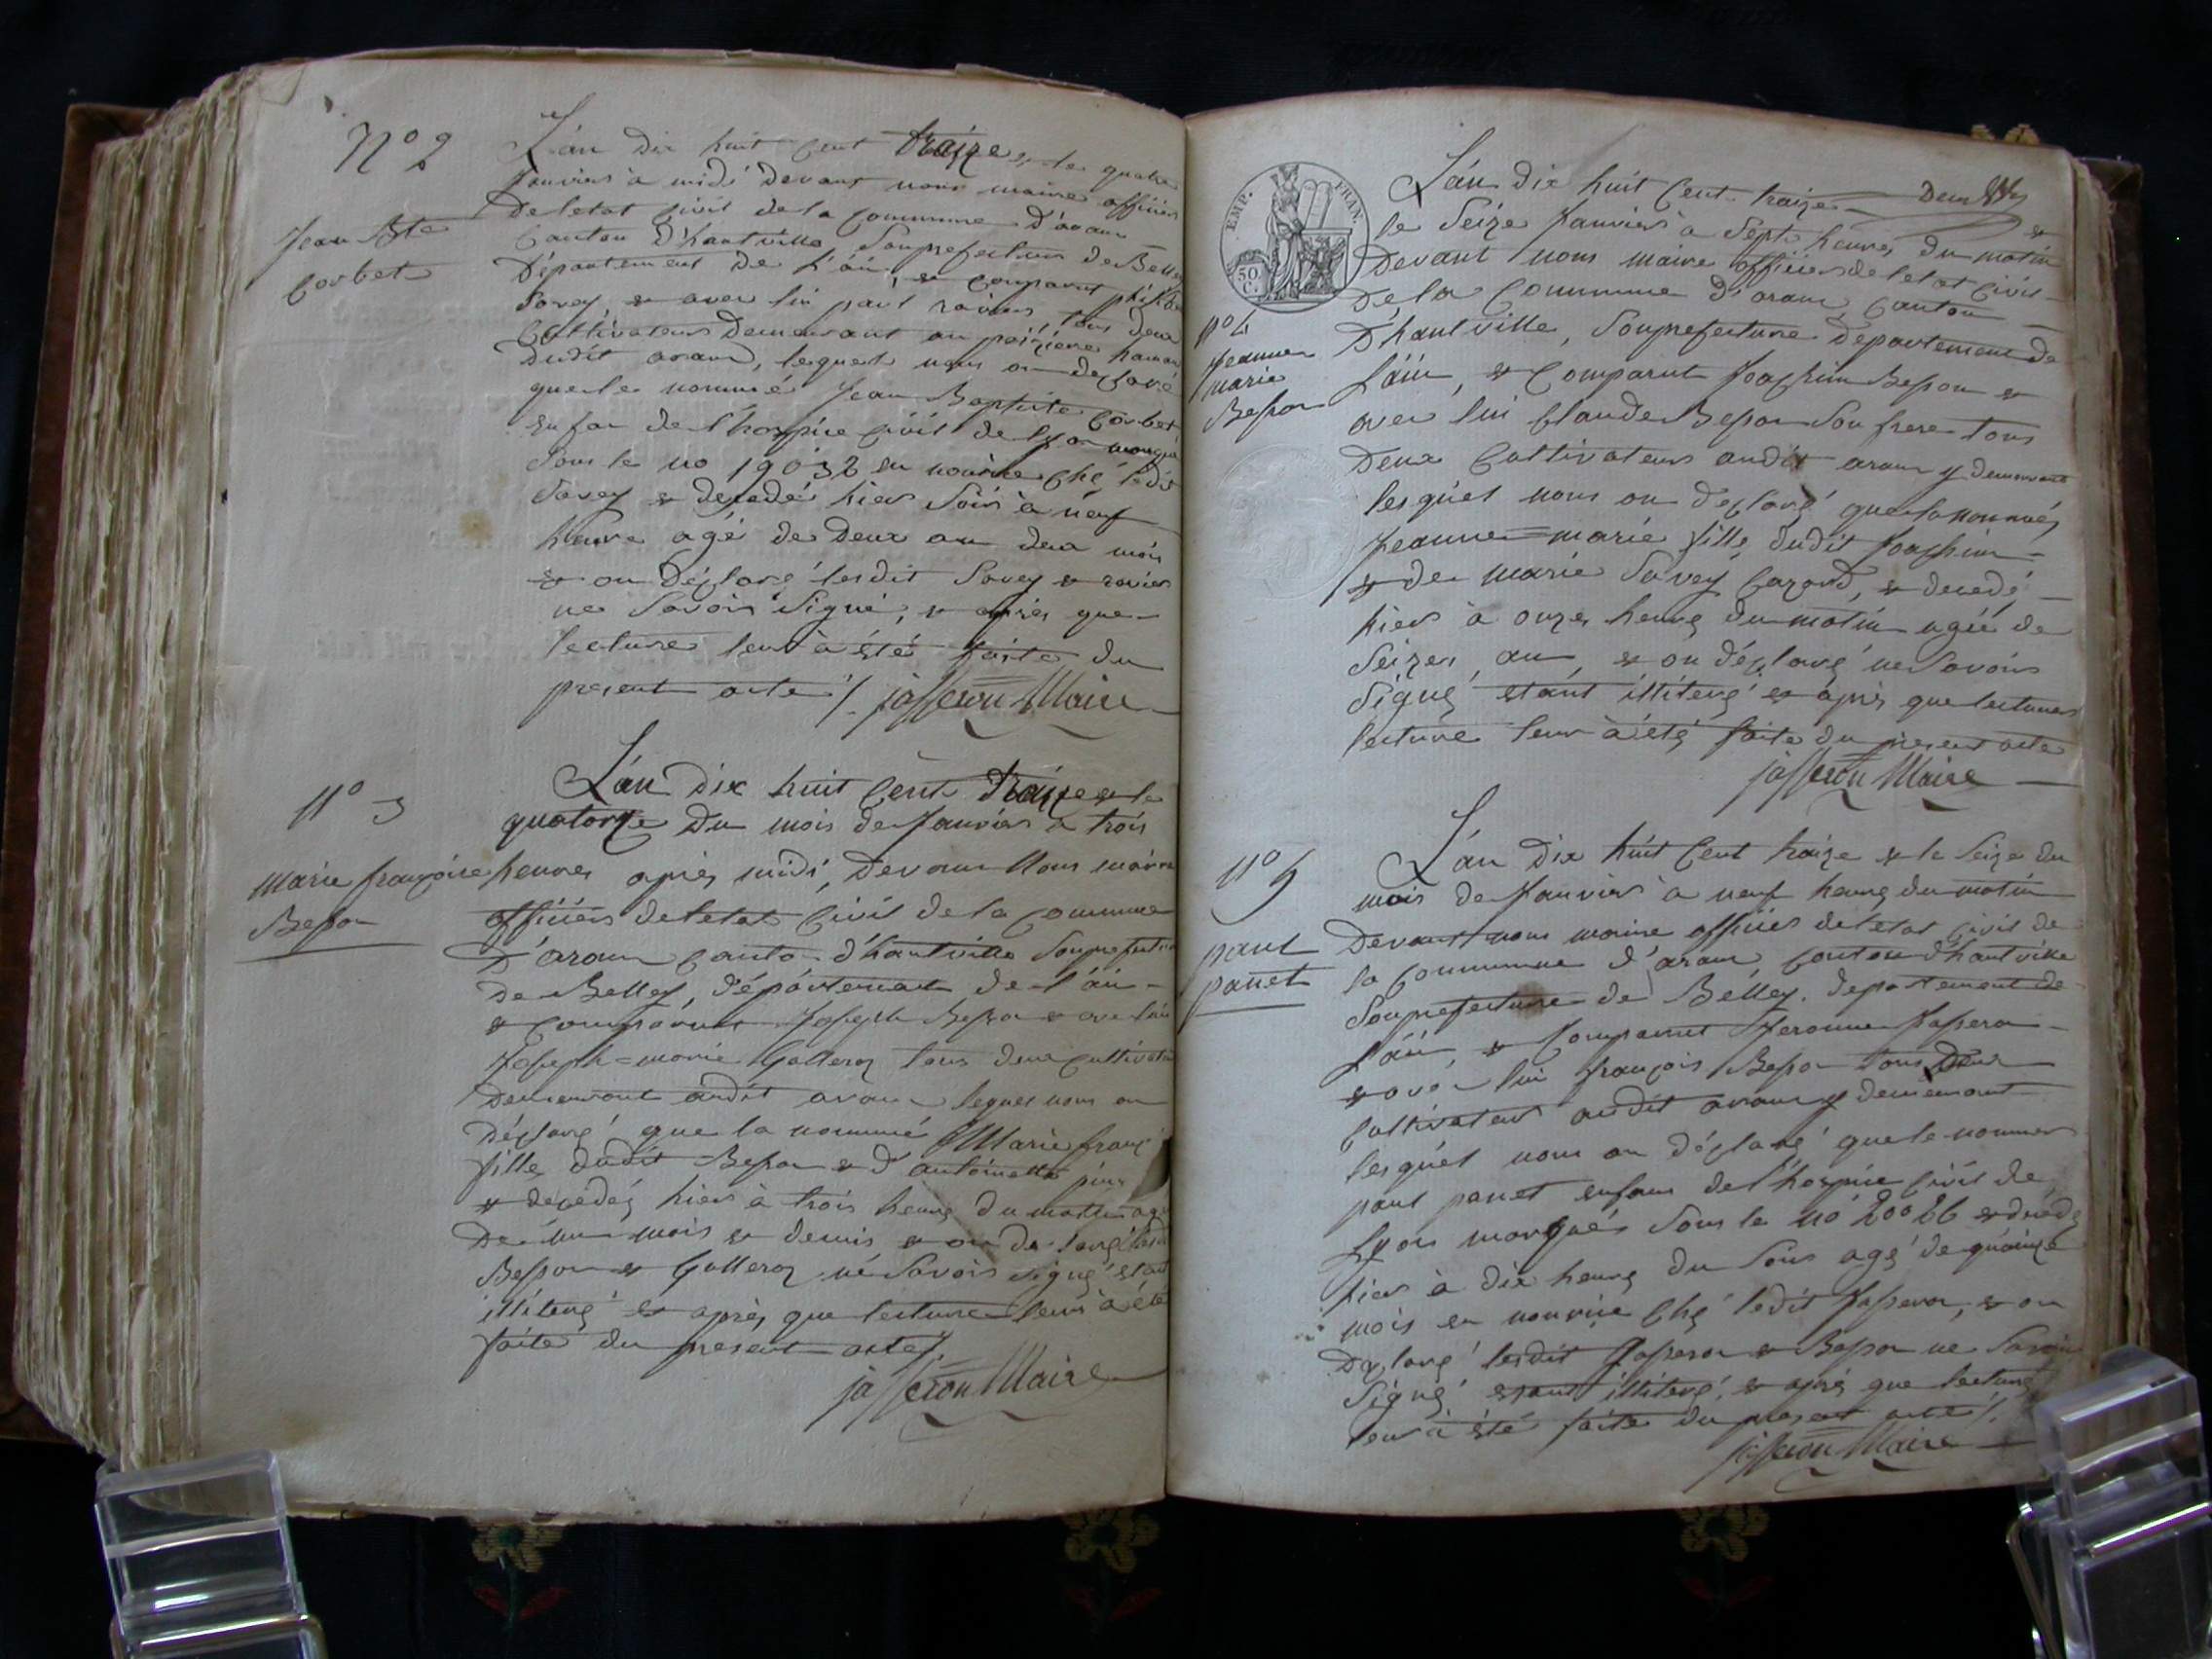 N° 2
Jean Bte
Corbet
L'án dix huit Cent traize, & le quatre
Janvier à midi devant nous maire officier
De letat Civil de la Commune D'aranc
Canton D'hautville, Souprefecture de Belley
Département de l'áin, & Comparut
Savey, & avec lui paul ravier, tous deux
Cultivateurs Demeurant au hameau
Dudit aranc, lequel nous on déclaré
que le nommé Jean Baptiste Corbet
Enfan de l'hospice Civil de Lyon marqué
Sous le no 19032 en nourice ché ledit
Savey & decedé hier Soir à neuf
heure agé de Deux an deux mois
& on déclaré lesdit Savey & ravier
ne Savoir Signé, & aprés que
lecture leur à été faite du
present acte /. jasseron Maire
N° 3
Marie françoise
Besson
L'án Dix huit Cent traize & le
quatorze Du mois de Janvier à trois
heures aprés midi, Devant Nous maire
officier de letat Civil de la Commune
D'aranc Canton d'hautville Souprefecture
De Belley, département de l'áin
& Comparut Joseph Besson & avec lui
Joseph=marie Golleron tous deux Cultivateur
Demeurant audit aranc lequel nous on
Déclaré que la nommé Marie franç
fille, dudit Besson & d'antoinette
& decédée, hier à trois heure du matin agé
De un mois & demis & on declaré lesdit
Besson & Golleron ne Savoir Signé etant
illiteré & aprés que lecture leur à été
faite du present acte /.
jasseron Maire
EMP. FRAN.
50 C.
Deux
N° 4
Jeanne
marie
Besson
L'án dix huit Cent traize &
le Seize Janvier à Sept heures, du matin
Devant nous maire officier de letat Civil
De la Commune d'aranc, Canton
D'hautville, Souprefecture Département de
L'áin, & Comparut Joachim Besson &
avec lui Claude Besson Son frere tous
Deux Cultivateurs audit aranc y demeurant
lesquel nous on déclaré que la nommée,
Jeanne=marie fille, dudit Joachim
& de marie Savey Carond, & decedé,
hier à onze heure du matin agée de
Seizes an, & on déclaré ne Savoir
Signé etant illiteré & aprés que lectures
lecture leur à été faite du present acte
jasseron Maire
N° 5
paul
panet
L'án Dix huit Cent traize & le Seize du
mois de Janvier à neuf heure du matin
Devant nous maire officier de letat Civil de
la Commune d'aranc, Canton d'hautville
Souprefecture de Belley. département de
L'áin, & Comparut Jerome Jasseron
& avec lui françois Besson tous Deux
Cultivateur audit aranc y demeurant
lesquel nous on déclaré que le nommer
paul panet enfans de l'hospice Civil de
Lyon marqués Sous le no 20066 & décédé
hier à dix heure du Soir agé de quainze
mois en nourice ché ledit Jasseron, & on
Déclaré lesdit Jasseron & Besson ne Savoir
Signé etant illiteré, & aprés que lecture
leur à été faite du present acte /.
jasseron Maire